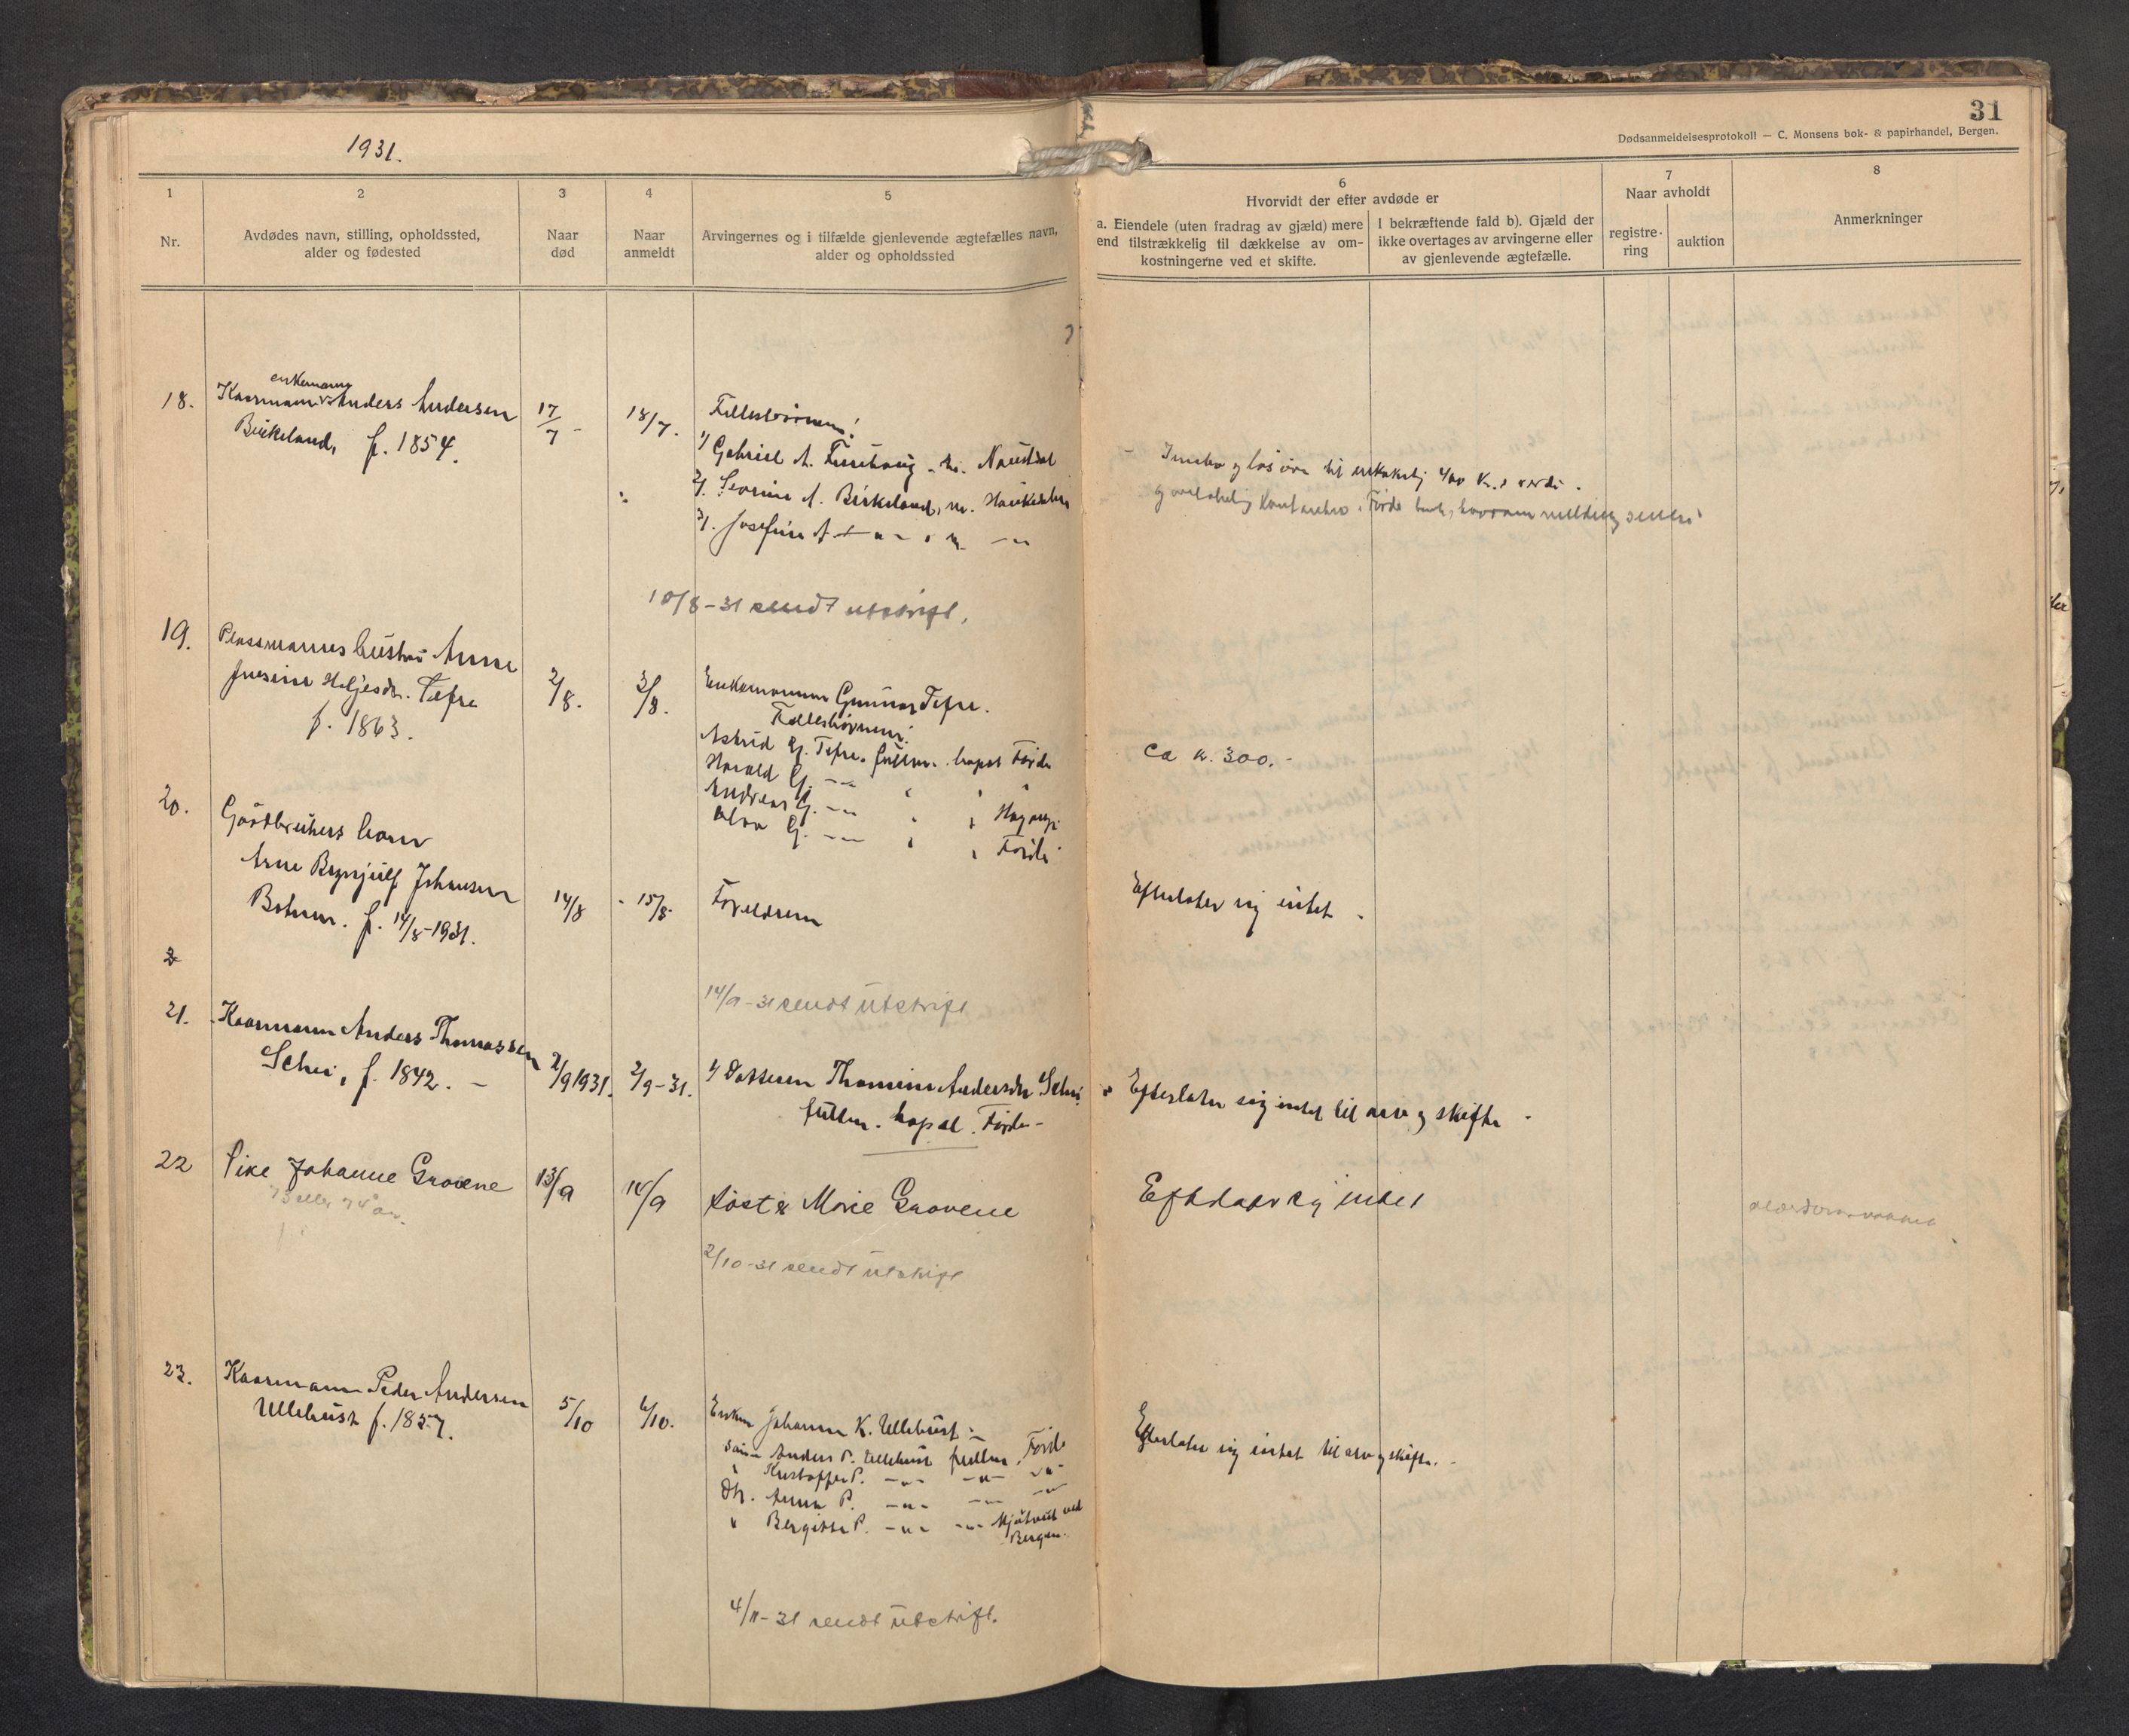 31
Dødsanmeldelsesprotokoll — C. Monsens bok- & papirhandel, Bergen.
1931.
1
2
3
4
5
6
7
8
Nr.
Avdødes navn, stilling, opholdssted,
alder og fødested
Naar
død
Naar
anmeldt
Arvingernes og i tilfælde gjenlevende ægtefælles navn,
alder og opholdssted
Hvorvidt der efter avdøde er
a. Eiendele (uten fradrag av gjæld) mere
end tilstrækkelig til dækkelse av om-
kostningerne ved et skifte.
I bekræftende fald b). Gjæld der
ikke overtages av arvingerne eller
av gjenlevende ægtefælle.
Naar avholdt
registre-
ring
auktion
Anmerkninger
18.
enkemann
Kaarmann Anders Andersen
Birkeland, f. 1854.
17/7 -
18/7.
Fellesbørnene:
1/ Gabriel A. Naustdal
2/. Severine A. Birkeland, m. Haukedalen
3/. Josefine A
Innbo og løsøre til 400 Kr.s verdi.
i Førde melding senere
10/8-31 sendt utskrift.
19.
Plassmanns hustru Anne
Heljesdtr. Tefre
f. 1863.
2/8.
3/8.
Enkemannen Gunnar Tefre.
Fellesbørnene:
Astrid G. Tefre. fullm. bopæl Førde
Harald G. -"-
Andreas G. -"-
G. -"- Førde
ca kr. 300.-
20.
Gårdbrukers barn
Arne Brynjulf Johansen
Botnen. f. 14/8-1931.
14/8
- 15/8-
Foreldrene
Efterlater sig intet -
14/9-31 sendt utskrift
21.
Kaarmann Anders Thomassen
Schei, f. 1842. -
2/9 1931.
2/9-31.
1/ Datteren Thomine Andersdtr Schei
fullm. bopæl Førde-
Efterlater sig intet til arv og skifte -
22
Pike Johanne Grovene
73 eller 74 år.
13/9
14/9
søster Marie Grovene
Efterlater sig intet
2/10-31 sendt utskrift
23.
Kaarmann Peder Andersen
Ullebust f. 1857.
5/10
6/10.
Enken Johanne K. Ullebust:-
Søn Anders P. Ullebust fullm. Førde
" Kristoffer P. -"- -"- -"-
Dtr. Anna P. -"- -"- -"-
" Bergitte P. -"- -"- ved
Bergen.
Efterlater sig intet til arv og skifte. -
4/11-31 sendt utskrift.